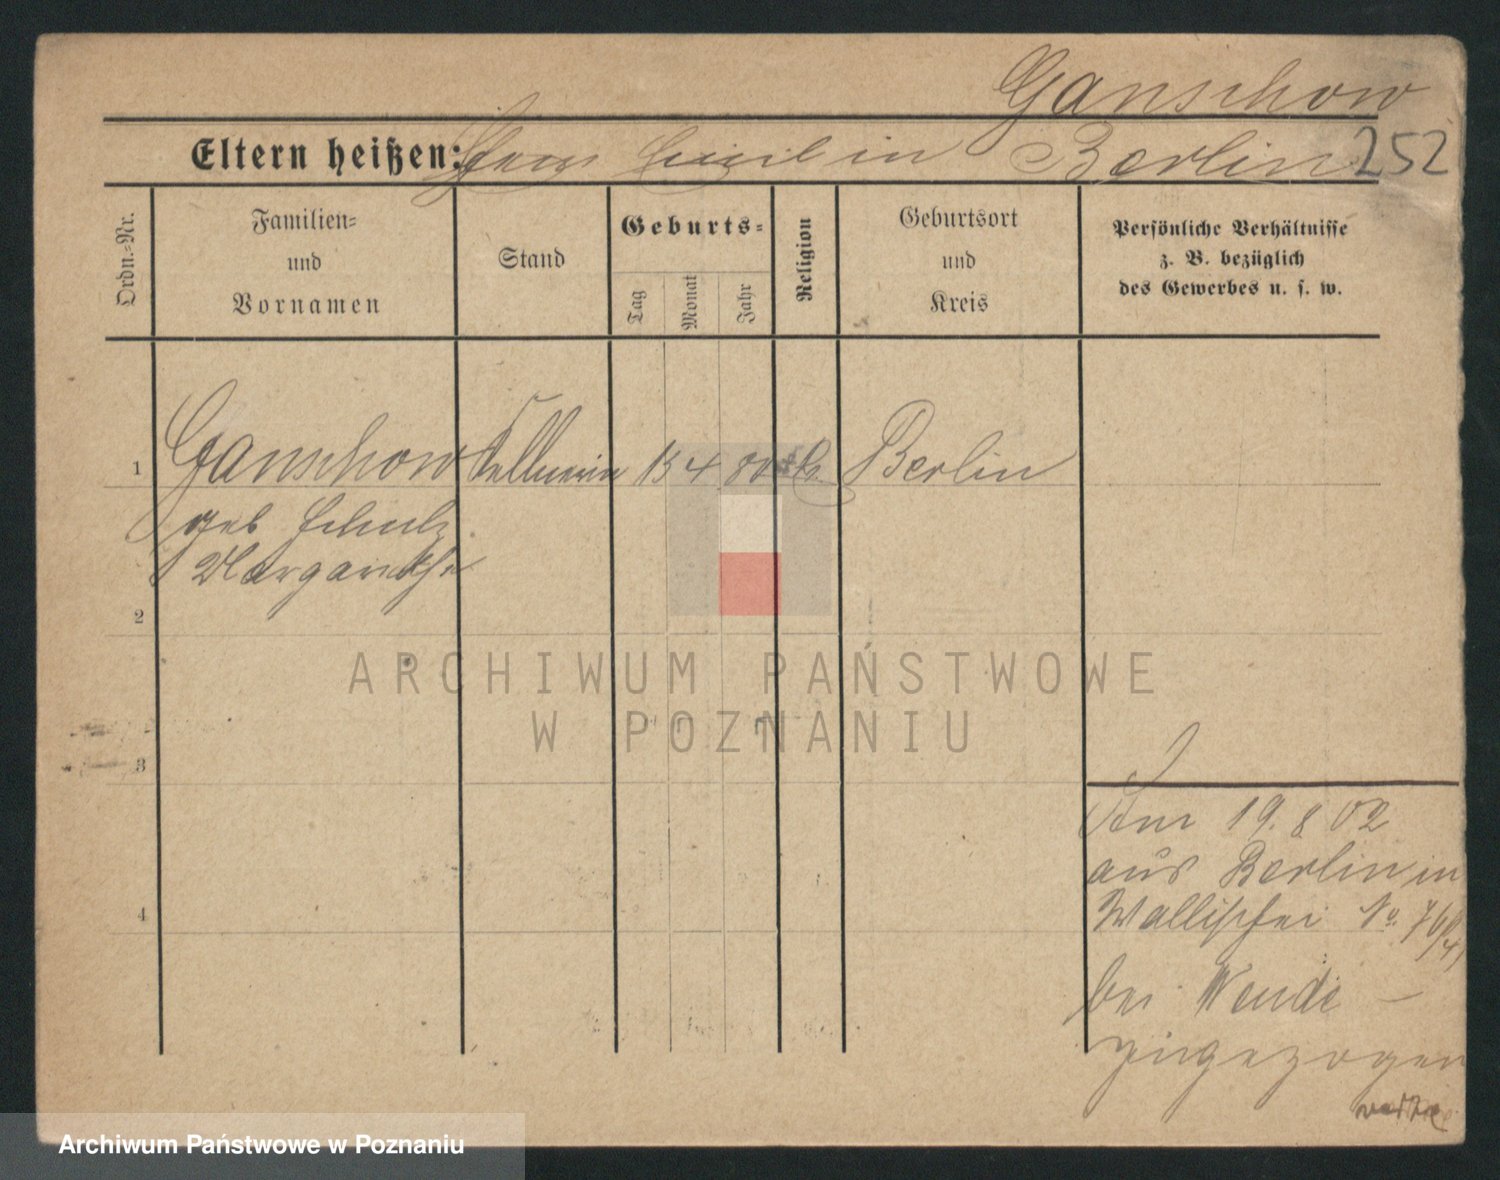 Ganschow
Eltern heißen: in Berlin 252
Ordn.=Nr.
Familien=
und
Vornamen
Stand
Geburts=
Tag
Monat
Jahr
Religion
Geburtsort
und
Kreis
Persönliche Verhältnisse
z. B. bezüglich
des Gewerbes u. s. w.
1 Ganschow Kellnerin 13 4 80 Berlin
geb Schulz
Margarethe
2
3
4
Am 19. 8 02
aus Berlin in
Wallischei No.
bei Wende
zugezogen
ARCHIWUM PAŃSTWOWE
W POZNANIU
Archiwum Państwowe w Poznaniu